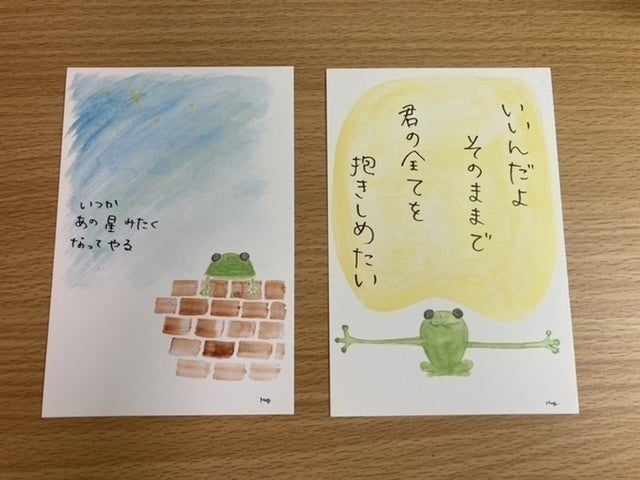 いつか
あの星みたく
なってやる
いいんだよ
そのままで
君の全てを
抱きしめたい